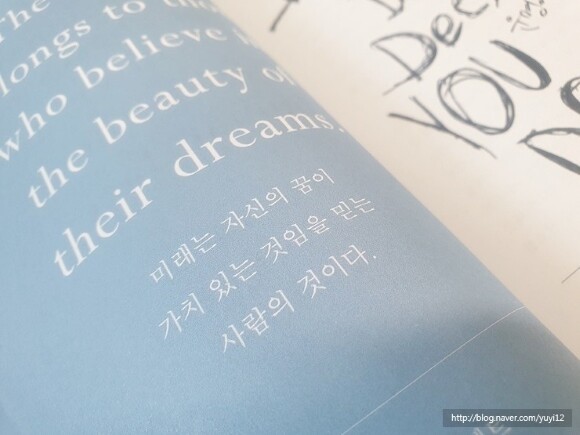 The
longs to the
who believe
the beauty of
their dreams.
미래는 자신의 꿈이
가치 있는 것임을 믿는
사람의 것이다.
YOU
http://blog.naver.com/yuyi12